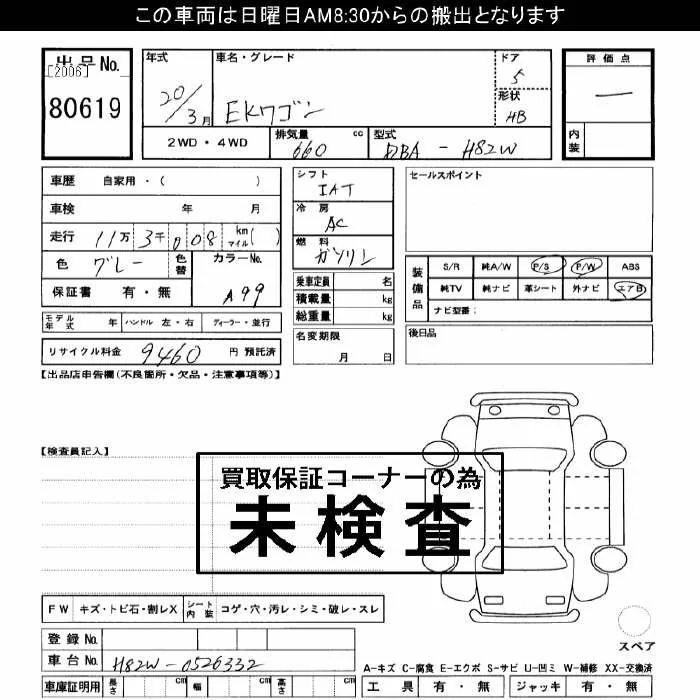 この車両は日曜日AM8:30からの搬出となります
出品No.
[2006]
80619
年式
20/3月
車名・グレード
EKワゴン
ドア
5
形状
HB
評価点
―
内装
2WD・4WD
排気量
660 cc
型式
DBA - H82W
車歴 自家用・( )
車検 年 月
走行 11万3千008 km マイル( )
色 グレー 色替 カラーNo. A99
保証書 有・無
モデル年式 年 ハンドル 左・右 ディーラー・並行
リサイクル料金 9460 円 預託済
シフト
IAT
冷房
AC
燃料
ガソリン
乗車定員 名
積載量 kg
総重量 kg
名変期限
月 日
セールスポイント
装備品
S/R 純A/W P/S P/W ABS
純TV 純ナビ 革シート 外ナビ エアB
ナビ型番:
後日品
【出品店申告欄(不良箇所・欠品・注意事項等)】
【検査員記入】
買取保証コーナーの為
未検査
FW キズ・トビ石・割レX シート内装 コゲ・穴・汚レ・シミ・破レ・スレ
登録No.
車台No. H82W-0526332
車庫証明用 長さ cm 幅 cm 高さ cm
スペア
A-キズ C-腐食 E-エクボ S-サビ U-凹ミ W-補修 XX-交換済
工具 有・無 ジャッキ 有・無